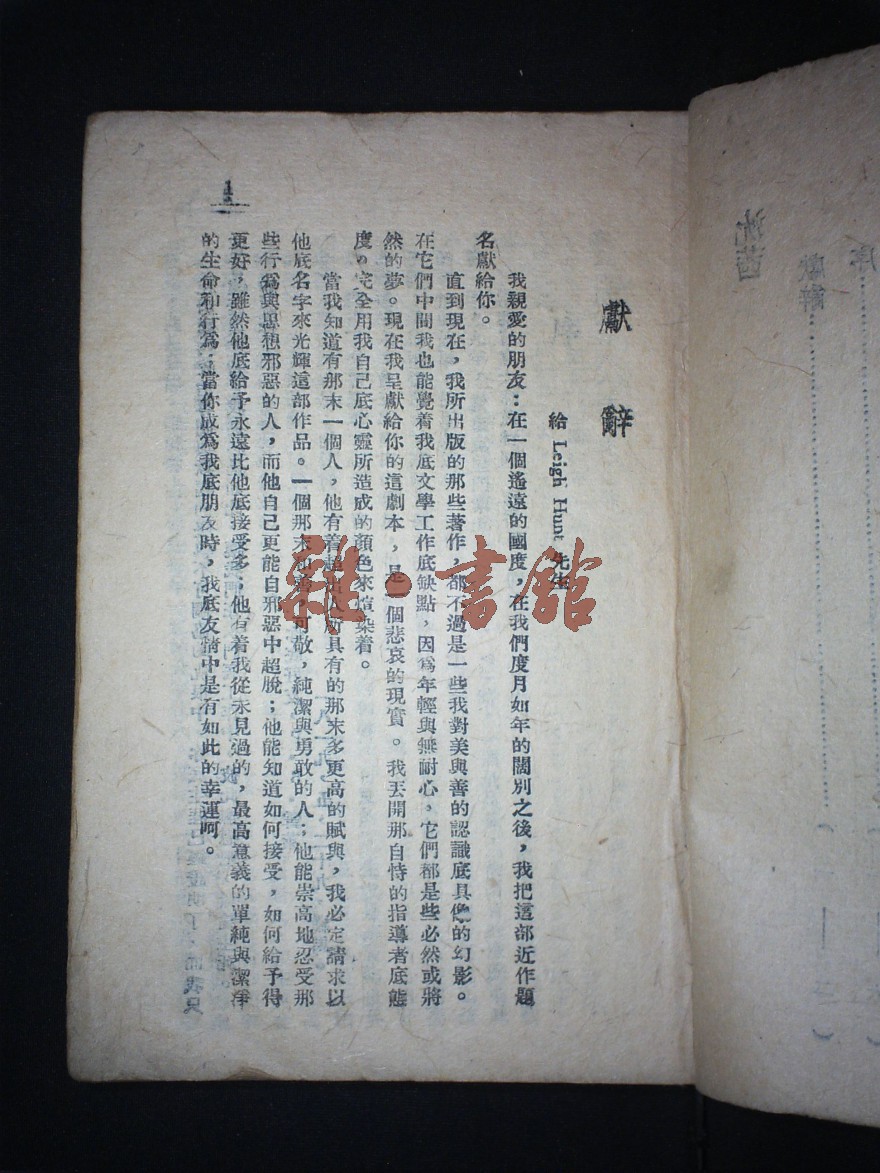 獻辭
給 Leigh Hunt 先生
我親愛的朋友：在一個遙遠的國度，在我們度月如年的闊別之後，我把這部近作題
名獻給你。
直到現在，我所出版的那些著作，都不過是一些我對美與善的認識底具像的幻影。
在它們中間我也能覺着我底文學工作底缺點，因爲年輕與無耐心，它們都是些必然或將
然的夢。現在我呈獻給你的這劇本，是一個悲哀的現實。我丟開那自恃的指導者底態
度。完全用我自己底心靈所造成的顏色來渲染着。
當我知道有那末一個人，他有着超出人所具有的那末多更高的賦與，我必定請求以
他底名字來光輝這部作品。一個那末和，可敬，純潔與勇敢的人；他能崇高地忍受那
些行爲與思想邪惡的人，而他自己更能自邪惡中超脫；他能知道如何接受，如何給予得
更好，雖然他底給予永遠比他底接受多；他有着我從未見過的，最高意義的單純與潔淨
的生命和行爲；當你成爲我底朋友時，我底友情中是有如此的幸運呵。
1
雜·書館
序
獻辭